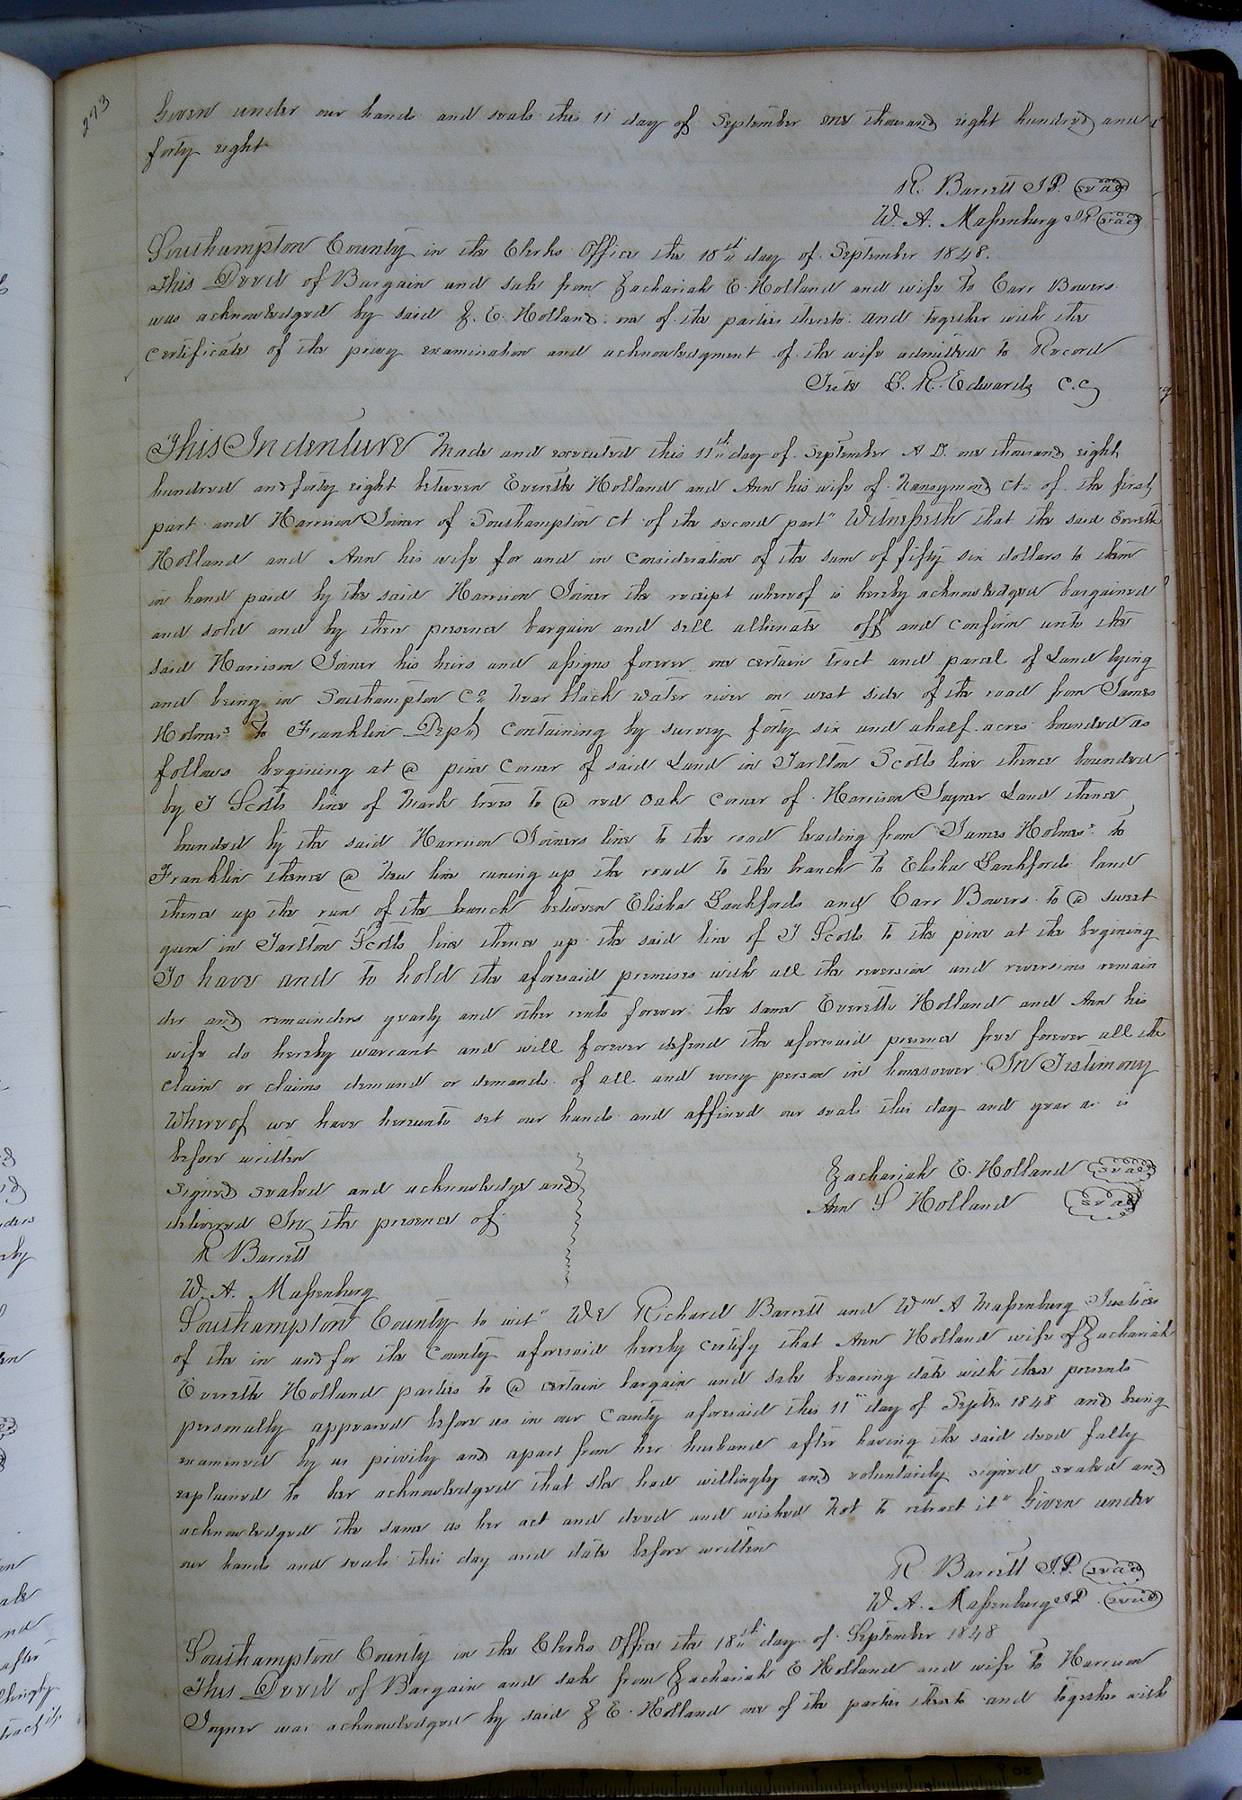 273
Given under our hands and seals this 11 day of September one thousand eight hundred and
forty eight
R. Barrett J.P. (seal)
W. A. Massenburg JP (seal)
Southampton County in the Clerks Office the 18th day of September 1848.
This Deed of Bargain and sale from Zachariah E. Holland and wife to Carr Bowers
was acknowledged by said Z. E. Holland one of the parties thereto and together with the
certificate of the privy examination and acknowledgment of the wife admitted to Record
Teste L. R. Edwards C.C
This Indenture Made and executed this 11th day of September A D. one thousand eight
hundred and forty eight between Everette Holland and Ann his wife of Nansymond Ct. of the first
part and Harrison Joiner of Southampton Ct of the second part" Witnesseth that the said Everette
Holland and Ann his wife for and in consideration of the sum of fifty six dollars to them
in hand paid by the said Harrison Joiner the receipt whereof is hereby acknowledged bargained
and sold and by these presence bargain and sell alienate off and confirm unto the
said Harrison Joiner his heirs and assigns forever one certain tract and parcel of Land lying
and being in Southampton Co. near black water river on west side of the road from James
Holmes to Franklin Depo containing by survey forty six and a half acres bounded as
follows begining at @ pine corner of said Land in Tarlton Scotts line thence bounded
by T Scotts line of Mark trees to @ red oak corner of Harrison Joyner Land thence
bounded by the said Harrison Joiners line to the road leading from James Holmes to
Franklin thence @ new line runing up the road to the branch to Elisha Lankfords land
thence up the run of the branch between Elisha Lankfords and Carr Bowers to @ sweet
gum in Tarlton Scotts line thence up the said line of T Scotts to the pine at the begining
To have and to hold the aforesaid premises with all the reversion and reversions remain
der and remainders yearly and other rents forever the same Everette Holland and Ann his
wife do hereby warrant and will forever defend the aforesaid presence free forever all the
claim or claims demand or demands of all and every person in homsoever In Testimony
Whereof we have hereunto set our hands and affixed our seals this day and year as is
before written
Zachariah E. Holland (seal)
Signed sealed and acknowledge and
Ann S Holland (seal)
delivered In the presence of
R Barrett
W. A. Massenburg
Southampton County to wit" We Richard Barrett and Wm A Massenburg Justices
of the in and for the County aforesaid hereby certify that Ann Holland wife of Zachariah
Everette Holland parties to @ certain bargain and sale bearing date with these presents
personally appeared before us in our County aforesaid this 11" day of Septr. 1848 and being
examined by us privily and apart from her husband after having the said deed fully
explained to her acknowledged that she had willingly and voluntarily signed sealed and
acknowledged the same as her act and deed and wished not to retract it" Given under
our hands and seals this day and date before written
R Barrett J.P. (seal)
W. A. Massenburg JP. (seal)
Southampton County in the Clerks Office the 18th day of September 1848
This Deed of Bargain and sale from Zachariah E Holland and wife to Harrison
Joyner was acknowledged by said Z E. Holland one of the parties thereto and together with